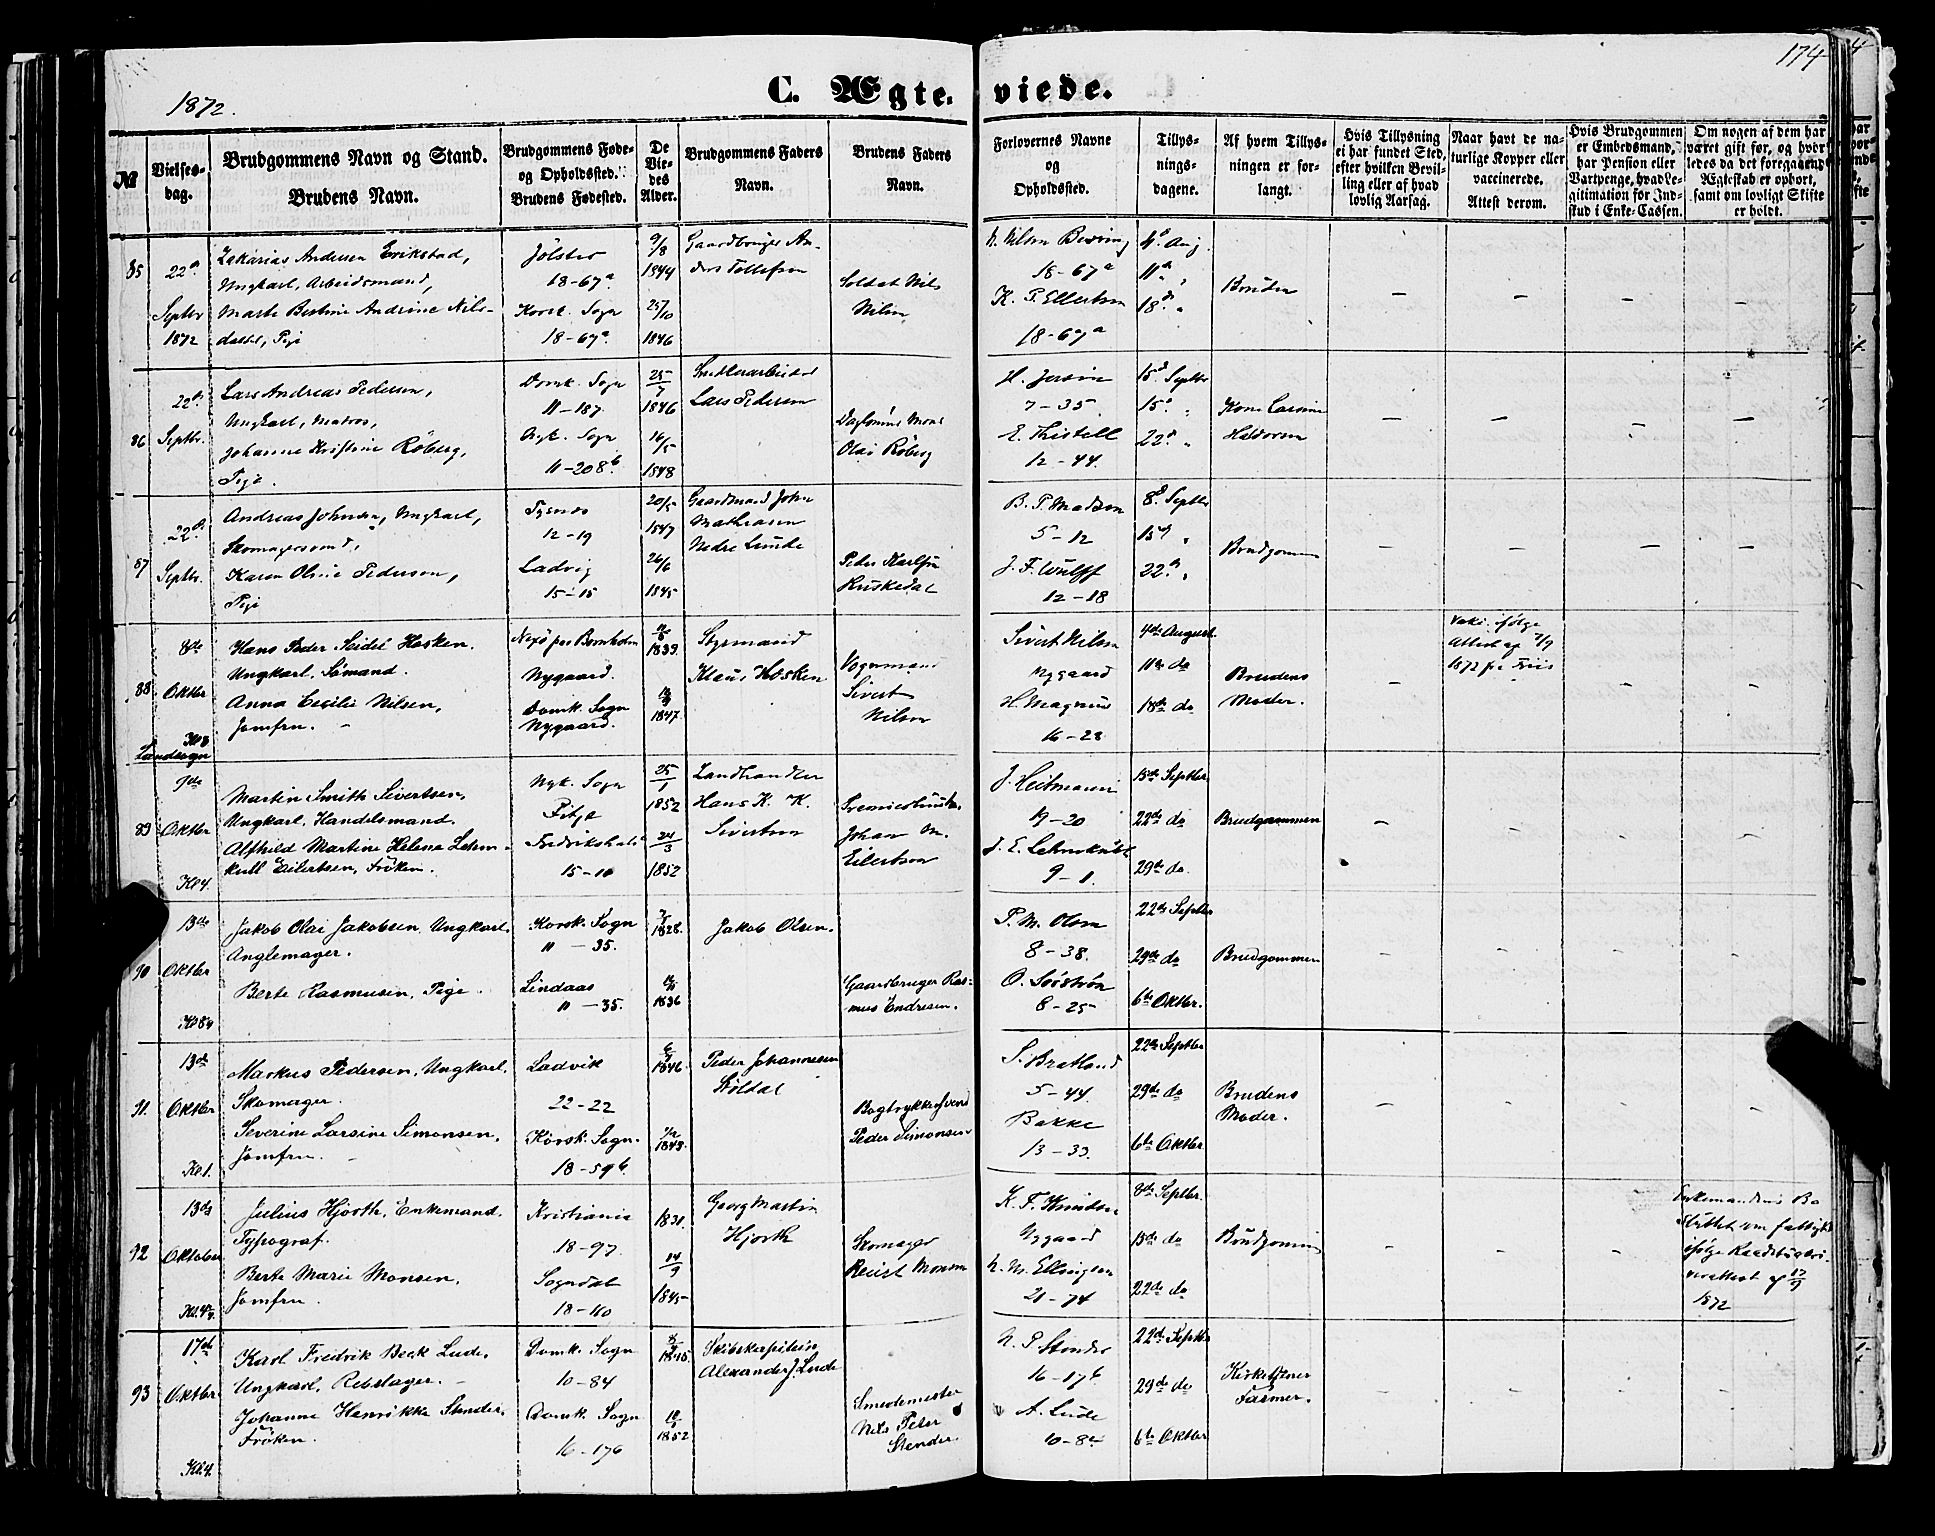 174
1872.
C. Ægte. viede.
№
Vielses-
dag.
Brudgommens Navn og Stand.
Brudens Navn.
Brudgommens Føde-
og Opholdssted.
Brudens Fødested.
De
Vie-
des
Alder.
Brudgommens Faders
Navn.
Brudens Faders
Navn.
Forlovernes Navne
og
Opholdssted.
Tillys-
nings-
dagene.
Af hvem Tillys-
ningen er for-
langt.
Hvis Tillysning
ei har fundet Sted,
efter hvilken Bevil-
ling eller af hvad
lovlig Aarsag.
Naar havt de na-
turlige Kopper eller
vaccinerede.
Attest derom.
Hvis Brudgommen
er Embedsmand,
har Pension eller
Vartpenge, hvad Le-
gitimation for Ind-
skud i Enke-Cassen.
Om nogen af dem har
været gift før, og hvor-
ledes da det foregaaende
Ægteskab er ophørt,
samt om lovligt Skifte
er holdt.
85
22d
Septbr
1872
Zakarias Andersen Erikstad,
Ungkarl, Arbeidsmand,
Marte Bertine Andrine Nils-
dattel, Pige
Jølster
18-67a
Korsk. Sogn
18-67a
9/8
1844
25/10
1846
Gaardbruger An-
ders Tollefsen
Soldat Nils
Nilsen
18-67a
K. P. Ellertsen
18-67a
4d Aug.
11d "
18d "
Bruden
86
22d
Septbr.
Lars Andreas Pedersen,
Ungkarl, Matros,
Johanne Kristine Röberg,
Pige.
Domk. Sogn
11-187.
Nyk. Sogn
11-208b
25/7
1846
16/5
1848
Lars Pedersen
Olai Röberg
7-35
12-44.
15d Septbr
15d "
22d "
Kone
Haldorsen
87
22d
Septbr.
Andreas Johnsen, Ungkarl,
Skomagersvend,
Karen Oline Pedersen,
Pige
Tysnes
12-19
Ladvig
15-15
20/5
1847
26/6
1845
Gaardmand John
Mathiasen
Nedre Lunde
Peder Karlsen
B. P. Madsen
5-12
J. F. Wulff
12-18
8d Septbr
15d "
22d "
Brudgommen
88
8de
Oktbr
Kl 8
Landsogn
Hans Peder Seidel Hosken.
Ungkarl, Sömand.
Anna Cecilie Nilsen,
Jomfru.
Nexö paa Bornholm
Nygaard.
Domk. Sogn
Nygaard.
1839
1847
Styrmand
Klaus Hosken
Vognmand
Sivert
Nilsen
Sivert Nilsen
Nygaard
H. Magnus
16-28
4de August
11te do
18de do
Brudens
Moder.
Vakc. ifölge
Attest af 7/9
1872 fra Friis
89
9de
Oktbr
Kl 4.
Martin Smith Sivertsen,
Ungkarl, Handelsmand.
Alfhild Martine Helena Lehm-
kull Eilertsen, Fröken.
Nyk. Sogn
Fitje
Fredrikshald
15-10
25/1
1852
24/3
1852
Landhandler
Hans K. K.
Sivertsen
Premierlöitn.
Johan M.
Eilertsen
J. Heitmann
19-20
J. E. Lehmkuhl
9-1.
15de Septbr
22de do
29de do.
Brudgommen
90
13de
Oktbr
Jakob Olai Jakobsen, Ungkarl.
Anglemager.
Berte Rasmusen, Pige.
Korsk. Sogn
11-35.
Lindaas
11-35.
1828.
1836
Jakob Olsen.
Gaardbruger Ras-
mus Endresen.
P. M. Olsen
8-38.
8-25
22de Septbr
29de do
6te Oktbr.
Brudgommen
91.
13de
Oktbr
Kl 1.
Markus Pedersen, Ungkarl.
Skomager.
Severine Larsine Simonsen,
Jomfru.
Ladvik
22-22
Korsk. Sogn.
18-59b.
1846.
1843.
Peder Johannesen
Stöldal
Bogtrykkersvend
Peder Simonsen
S. Bratland
5-44.
Bakke
13-33
22de Septbr
29de do
6te Oktbr
Brudens
Moder.
92
13de
Oktober
Julius Hjorth, Enkemand.
Typograf.
Berte Marie Monsen.
Jomfru.
Kristiania
18-97.
Sogndal
18-110
1831.
14/9
1845
Georg Martin
Hjorth
Skomager
Monsen
K. F. Knudsen
Nygaard
21-74
8de Septbr.
15de do
22de do
Brudgommen
Enkemandens Bo
sluttet som fattigt
ifölge
af 17/9
1872
93
17de
Oktbr
Kl 4.
Karl Fredrik Beck Lude.
Ungkarl, Rebslager.
Johanne Henrikke Stender.
Fröken.
Domk. Sogn
10-84
Domk. Sogn
16-176
1845.
1852
Skibskaptein
Alexander J. Lude
Smedemester
Nils Peter
Stender.
N. P. Stender
16-176
A. Lude
22de Septbr
29de do
6te Oktbr
Kirketjener
Fasmer.